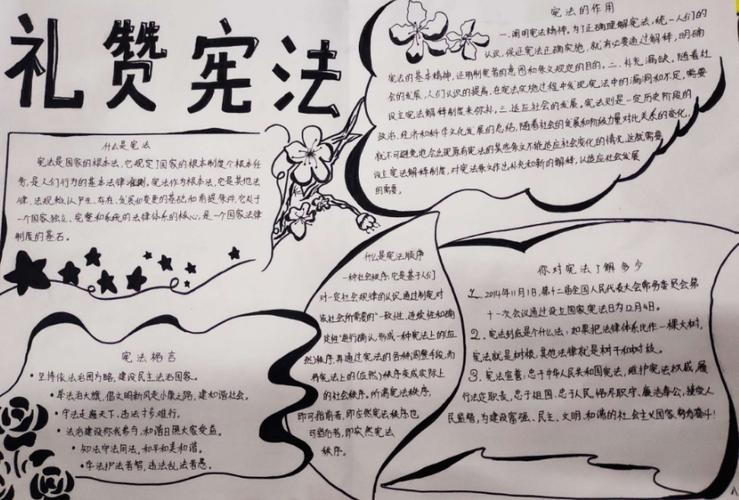 礼赞宪法
什么是宪法
宪法是国家的根本法,它规定了国家的根本制度个根本任
务,是人们行为的基本法律准则。宪法作为根本法,它是其他法
律、法规赖以产生、存在、发展和变更的基础和前提条件,它处于
一个国家独立、完整和系统的法律体系的核心,是一个国家法律
制度的基石。
宪法的作用
一、阐明宪法精神。为了正确理解宪法,统一人们的
认识,保证宪法正确实施,就有必要通过解释,明确
宪法的基本精神,证明制宪者的意图和条文规定的目的。二、补充漏缺。随着社
会的发展,人们认识的提高,在宪法实施过程中发现宪法中的漏洞和不足,需要
设立宪法解释制度来弥补。三、适应社会的发展。宪法则是一定历史阶段的
政治、经济和科学文化发展的总结,随着社会的发展和阶级力量对比关系的变化,
就不可避免地会出现原有宪法的某些条文不能适应社会变化的情况,这就需要
设立宪法解释制度,对宪法条文作出补充和新的解释,以适应社会发展
的需要。
什么是宪法顺序
一种社会秩序,它是基于人们
对一定社会规律的认识,通过制宪对
社会所需要的"一致性、连续性和确
定性"进行确认,形成一种宪法上的(应
然)秩序,再通过宪法的各种调整手段,而
将宪法上的(应然)秩序变成实际上
的社会秩序。所谓宪法秩序,
即可指前者,即应然宪法秩序也
可指后者,即实然宪法
秩序。
宪法格言
• 坚持依法治国方略,建设民主法治国家。
• 举法治大旗,倡文明新风走小康之路,建和谐社会。
• 守法走遍天下,违法寸步难行。
• 法治建设你我参与,和谐日照大家受益。
• 知法守法用法,和平和美和谐。
• 学法护法者智,违法乱法者愚。
你对宪法了解多少
1、2014年11月1日,第十二届全国人民代表大会常务委员会第
十一次会议通过设立国家宪法日为12月4日。
2、宪法到底是个什么法:如果把法律体系比作一棵大树,
宪法就是树根,其他法律就是树干和树枝。
3、宪法宣誓:忠于中华人民共和国宪法,维护宪法权威,履
行法定职责,忠于祖国、忠于人民,恪尽职守、廉洁奉公,接受人
民监督,为建设富强、民主、文明、和谐的社会主义国家努力奋斗!